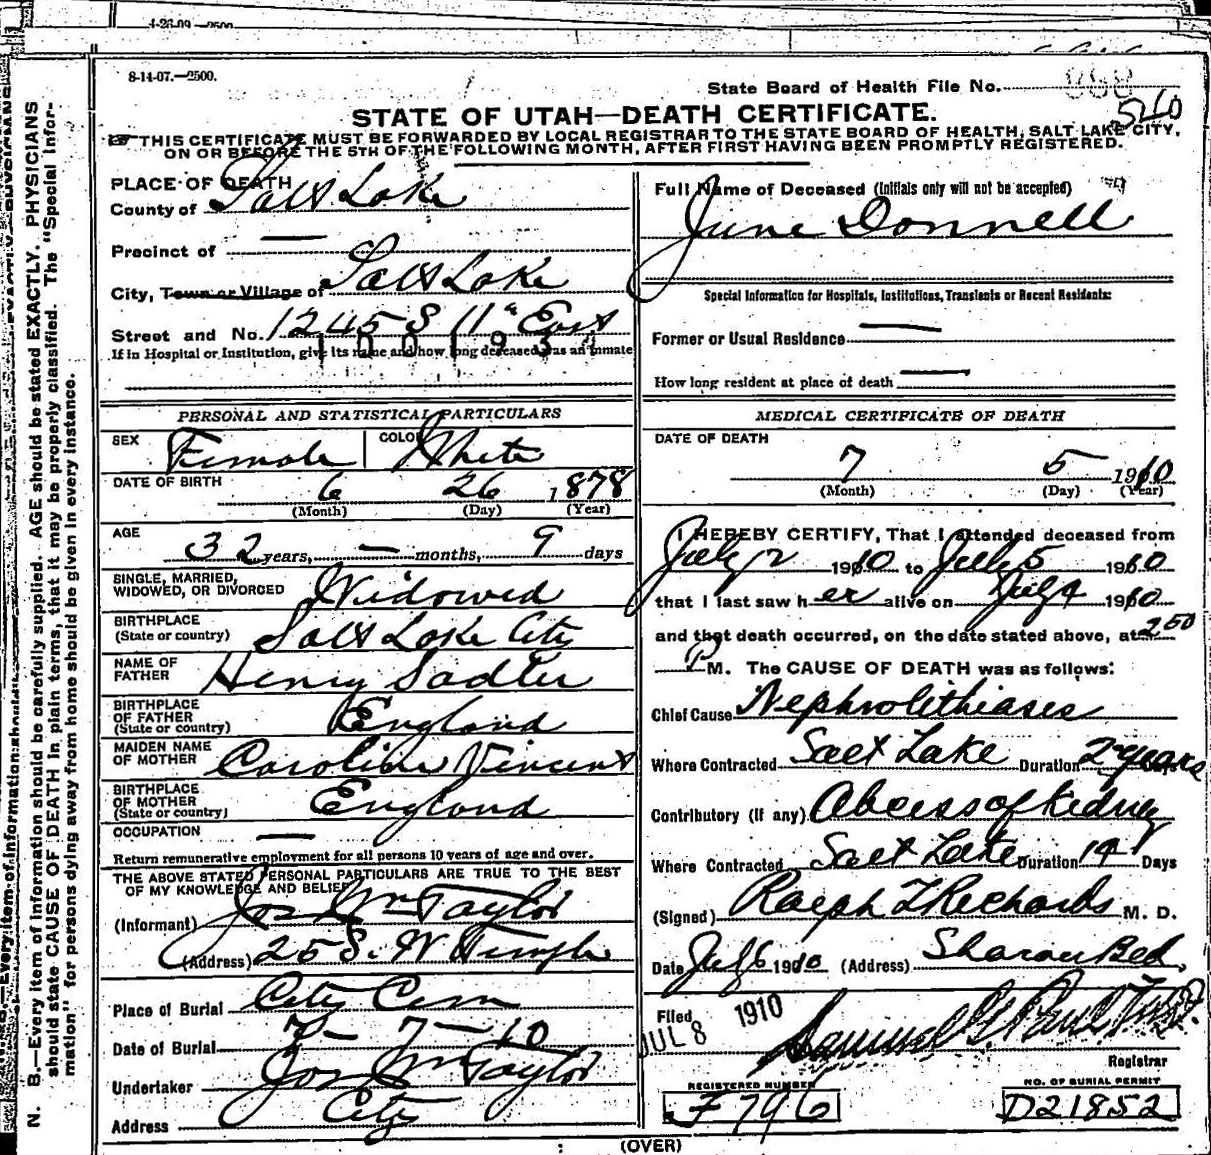 4-26-09—2500
8-14-07.—2500.
State Board of Health File No.
560
STATE OF UTAH—DEATH CERTIFICATE.
☞ THIS CERTIFICATE MUST BE FORWARDED BY LOCAL REGISTRAR TO THE STATE BOARD OF HEALTH, SALT LAKE CITY,
ON OR BEFORE THE 5TH OF THE FOLLOWING MONTH, AFTER FIRST HAVING BEEN PROMPTLY REGISTERED.
PLACE OF DEATH
County of Salt Lake
Precinct of —
City, Town or Village of Salt Lake
Street and No. 1245 S 11" East
If in Hospital or Institution, give its name and how long deceased was an inmate
Full Name of Deceased (Initials only will not be accepted)
June Donnell
Special Information for Hospitals, Institutions, Transients or Recent Residents:
Former or Usual Residence —
How long resident at place of death —
PERSONAL AND STATISTICAL PARTICULARS
SEX Female COLOR White
DATE OF BIRTH 6 26 1878
(Month) (Day) (Year)
AGE 32 years, — months, 9 days
SINGLE, MARRIED,
WIDOWED, OR DIVORCED Widowed
BIRTHPLACE
(State or country) Salt Lake City
NAME OF
FATHER Henry Sadler
BIRTHPLACE
OF FATHER
(State or country) England
MAIDEN NAME
OF MOTHER Caroline Vincent
BIRTHPLACE
OF MOTHER
(State or country) England
OCCUPATION —
Return remunerative employment for all persons 10 years of age and over.
THE ABOVE STATED PERSONAL PARTICULARS ARE TRUE TO THE BEST
OF MY KNOWLEDGE AND BELIEF
(Informant) Jos Wm Taylor
(Address) 25 S. W Temple
Place of Burial City Cem
Date of Burial 7 — 7 — 10
Undertaker Jos Wm Taylor
Address City
MEDICAL CERTIFICATE OF DEATH
DATE OF DEATH
7 5 1910
(Month) (Day) (Year)
I HEREBY CERTIFY, That I attended deceased from
July 2 1910 to July 5 1910
that I last saw her alive on July 4 1910
and that death occurred, on the date stated above, at 2 50
P M. The CAUSE OF DEATH was as follows:
Chief Cause Nephrolithiases
Where Contracted Salt Lake Duration 2 years
Contributory (If any) Abcess of Kidney
Where Contracted Salt Lake Duration 14 Days
(Signed) Ralph T Richards M. D.
Date July 6 1910 (Address) Sharon Bld.
Filed JUL 8 1910
Samuel G. Paul
Registrar
REGISTERED NUMBER
F796
NO. OF BURIAL PERMIT
D21852
(OVER)
N. B.—Every item of information should be carefully supplied. AGE should be stated EXACTLY. PHYSICIANS
should state CAUSE OF DEATH in plain terms, that it may be properly classified. The "Special Infor-
mation" for persons dying away from home should be given in every instance.